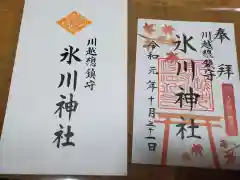 川越總鎮守
氷川神社
奉拝
川越總鎮守
氷川神社
令和元年十月三十一日